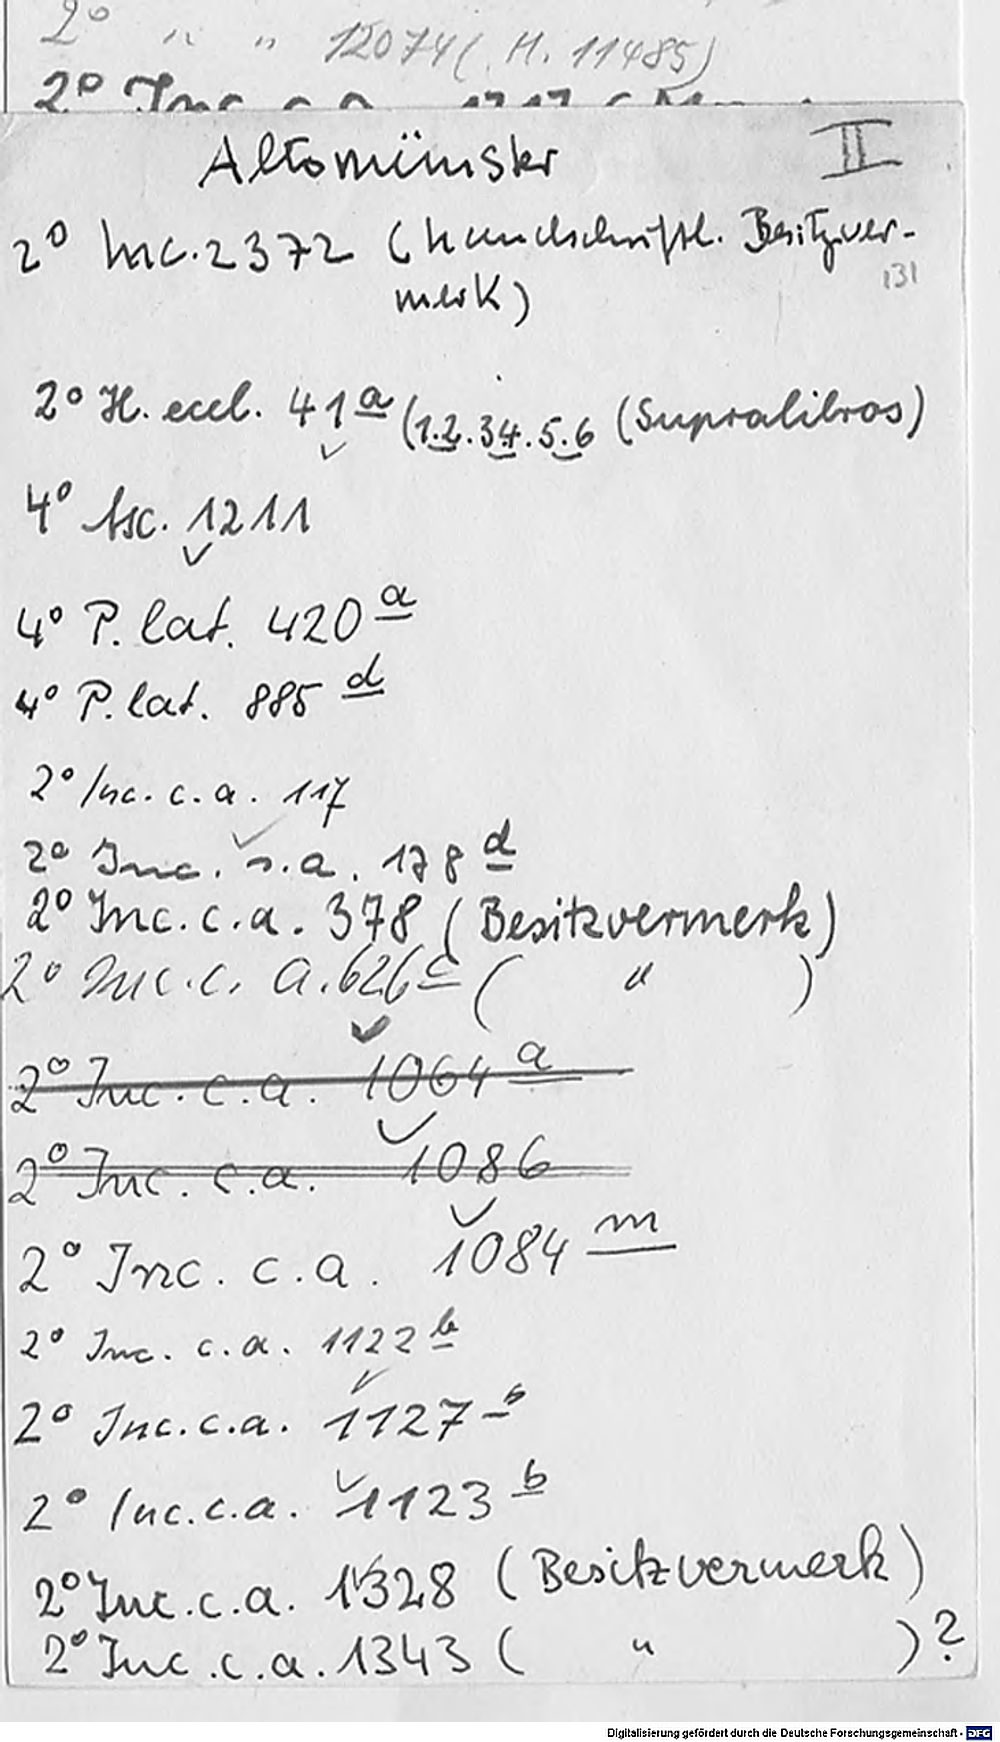 2° " " 12074 (H. 11485)
2° Inc. c.a.
Altomünster II
2° Inc. 2372 (handschriftl. Besitzver-
merk)
131
2° H. eccl. 41a (1.2.34.5.6 (Supralibros)
4° Asc. 1211
4° P. lat. 420a
4° P. lat. 885d
2° Inc. c.a. 117
2° Inc. s.a. 178d
2° Inc. c.a. 378 (Besitzvermerk)
2° Inc. c. a. 626c ( " )
2° Inc. c.a. 1064a
2° Inc. c.a. 1086
2° Inc. c.a. 1084m
2° Inc. c.a. 1122b
2° Inc. c.a. 1127b
2° Inc. c.a. 1123b
2° Inc. c.a. 1328 (Besitzvermerk)
2° Inc. c.a. 1343 ( " )?
Digitalisierung gefördert durch die Deutsche Forschungsgemeinschaft - DFG